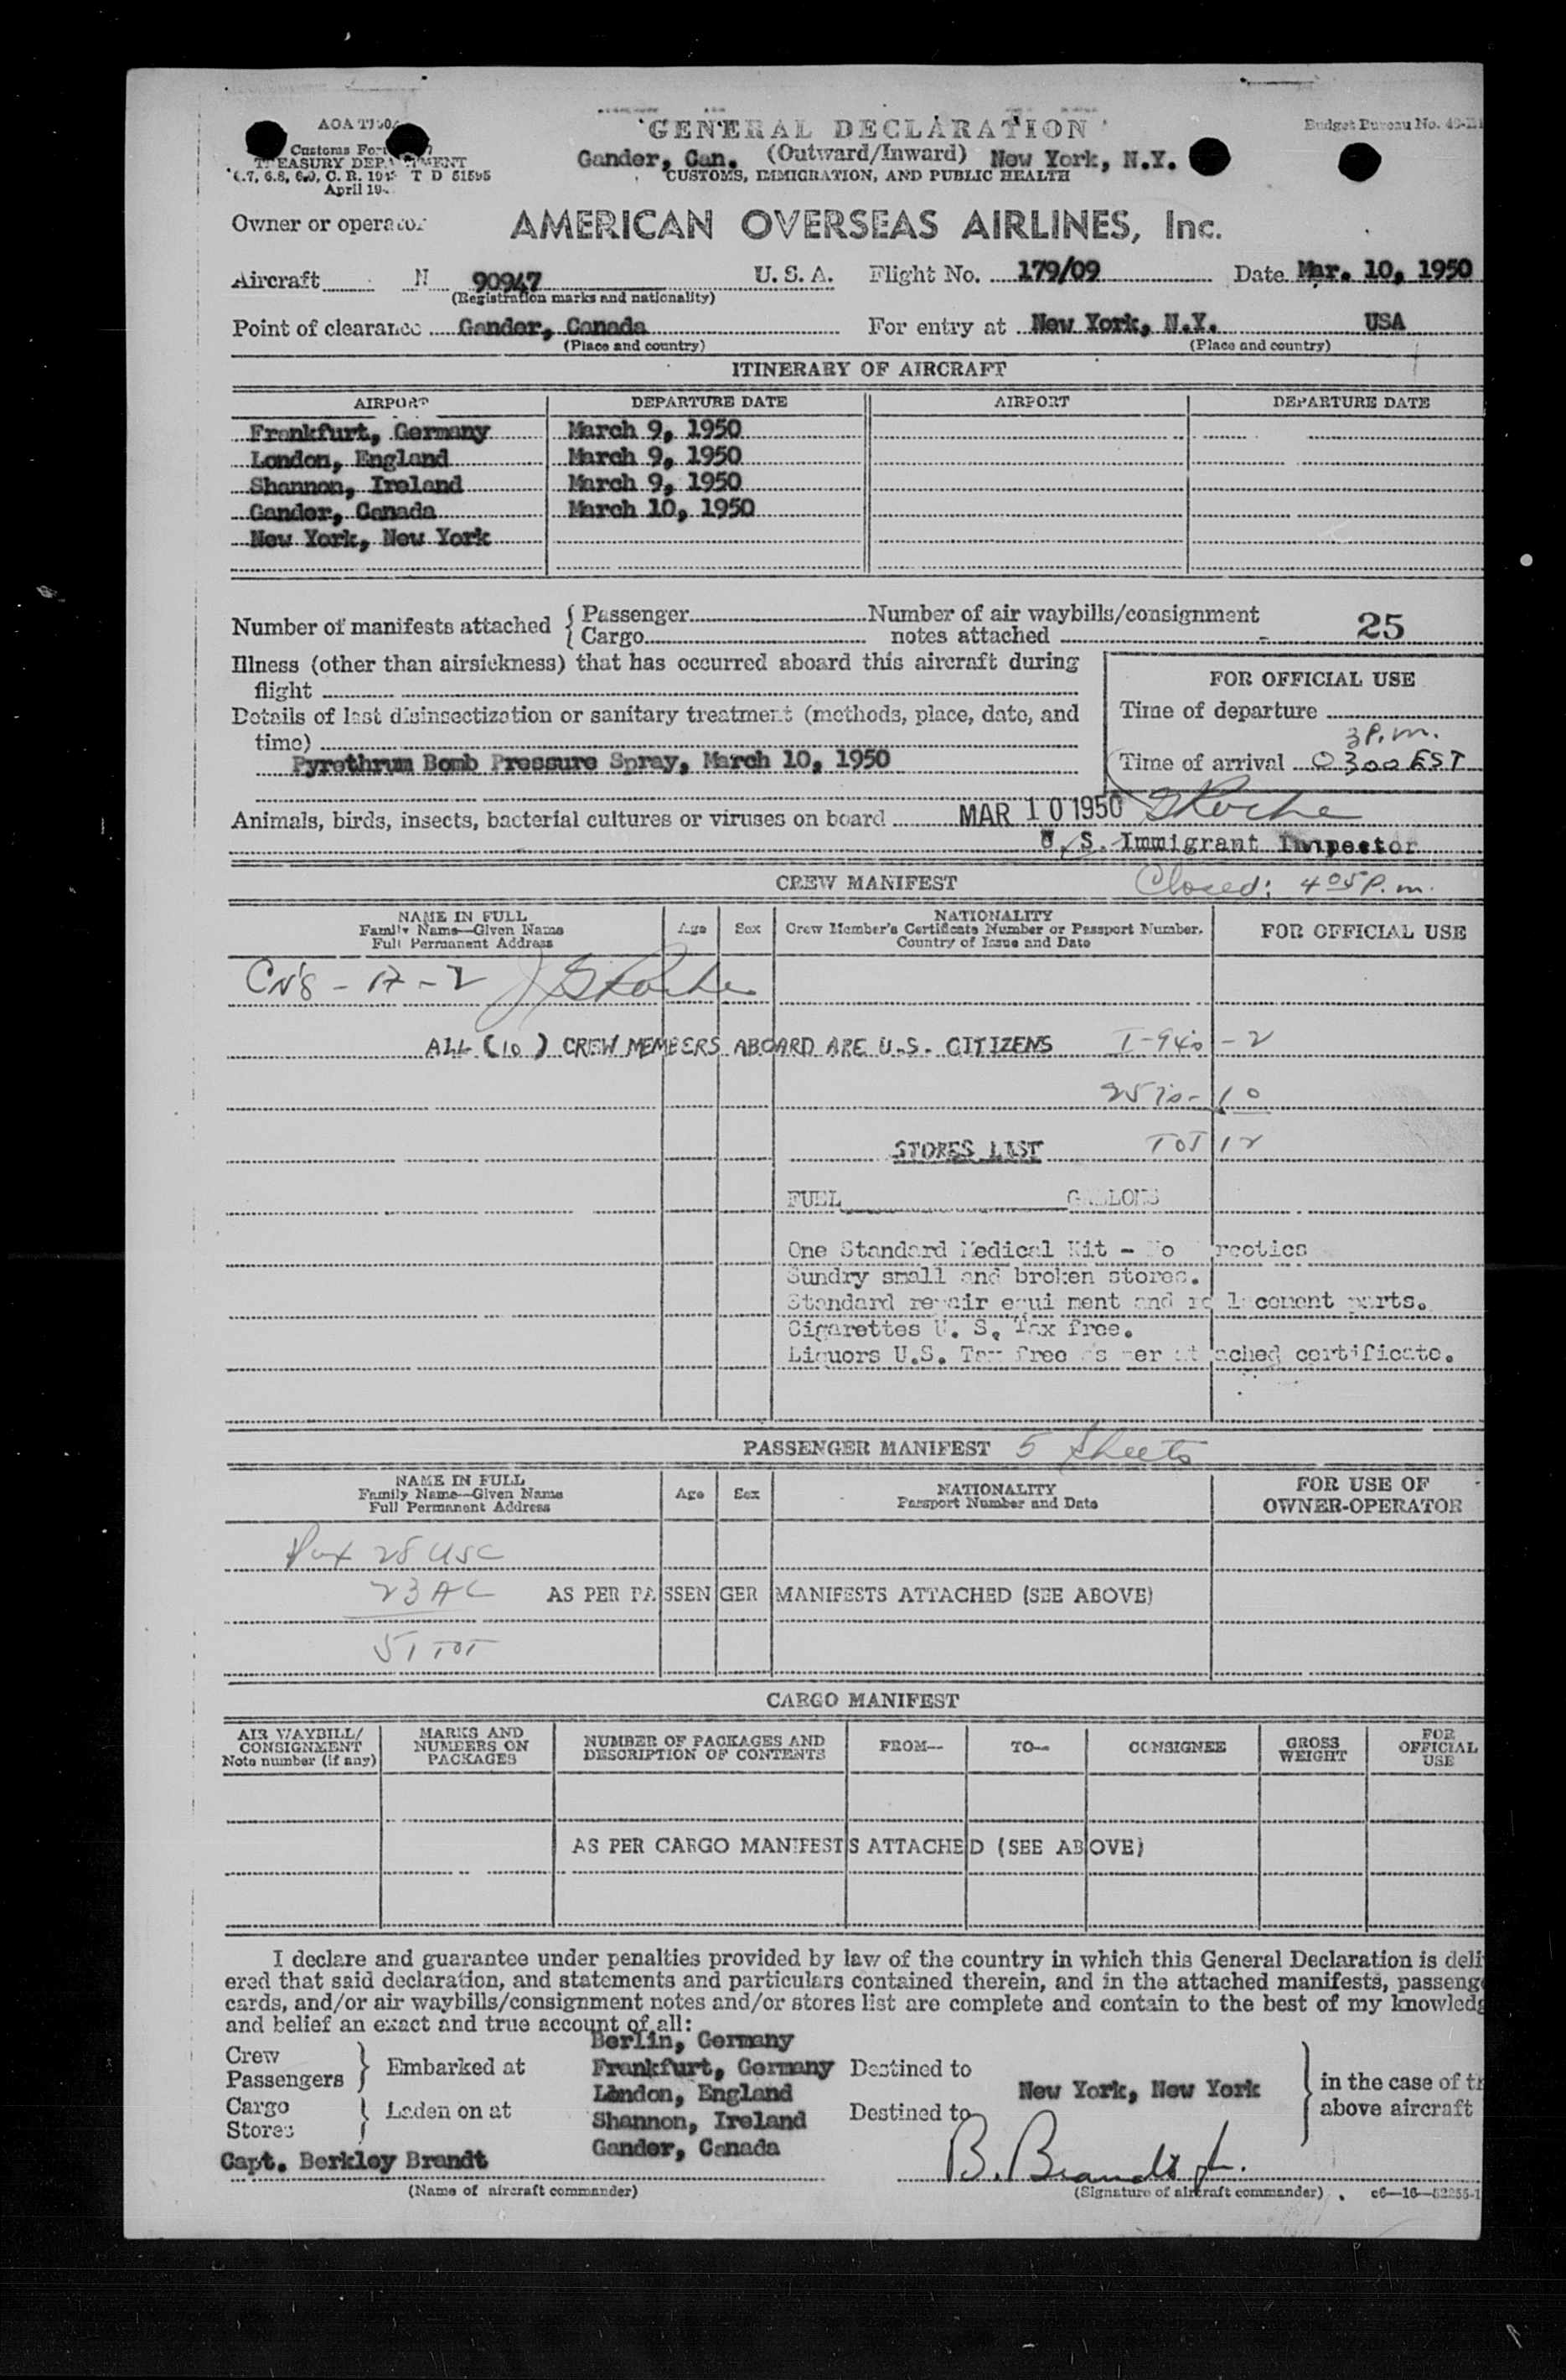 AOA
GENERAL DECLARATION
Budget Bureau No.
Gander, Can. (Outward/Inward) New York, N.Y.
Customs
TREASURY DEPARTMENT
CUSTOMS, IMMIGRATION, AND PUBLIC HEALTH
T D 51595
April
Owner or operator AMERICAN OVERSEAS AIRLINES, Inc.
Aircraft N 90947 U. S. A. Flight No. 179/09 Date Mar. 10, 1950
(Registration marks and nationality)
Point of clearance Gander, Canada For entry at New York, N.Y. USA
(Place and country) (Place and country)
ITINERARY OF AIRCRAFT
AIRPORT DEPARTURE DATE AIRPORT DEPARTURE DATE
Frankfurt, Germany March 9, 1950
London, England March 9, 1950
Shannon, Ireland March 9, 1950
Gander, Canada March 10, 1950
New York, New York
Number of manifests attached { Passenger Number of air waybills/consignment
Cargo notes attached - 25
Illness (other than airsickness) that has occurred aboard this aircraft during
flight
FOR OFFICIAL USE
Details of last disinsectization or sanitary treatment (methods, place, date, and
time)
Time of departure
3 P.m.
Pyrethrum Bomb Pressure Spray, March 10, 1950
Time of arrival 0300 EST
Animals, birds, insects, bacterial cultures or viruses on board MAR 10 1950
U. S. Immigrant Inspector
CREW MANIFEST Closed: 4 05 P.m.
NAME IN FULL
Family Name—Given Name
Full Permanent Address
Age Sex
NATIONALITY
Crew Member's Certificate Number or Passport Number.
Country of Issue and Date
FOR OFFICIAL USE
ALL (10) CREW MEMBERS ABOARD ARE U.S. CITIZENS I-94s - 2
10
STORES LIST TOT 12
FUEL GALLONS
One Standard Medical Kit - No rcotics
Sundry small and broken stores.
Standard repair equi ment and re lacement parts.
Cigarettes U. S. Tax free.
Liquors U.S. Tax free as per at ached certificate.
PASSENGER MANIFEST 5 Sheets
NAME IN FULL
Family Name—Given Name
Full Permanent Address
Age Sex
NATIONALITY
Passport Number and Date
FOR USE OF
OWNER-OPERATOR
Pax 28 USC
23 AC AS PER PASSENGER MANIFESTS ATTACHED (SEE ABOVE)
51 TOT
CARGO MANIFEST
AIR WAYBILL/
CONSIGNMENT
Note number (if any)
MARKS AND
NUMBERS ON
PACKAGES
NUMBER OF PACKAGES AND
DESCRIPTION OF CONTENTS
FROM— TO— CONSIGNEE
GROSS
WEIGHT
FOR
OFFICIAL
USE
AS PER CARGO MANIFESTS ATTACHED (SEE ABOVE)
I declare and guarantee under penalties provided by law of the country in which this General Declaration is deli
ered that said declaration, and statements and particulars contained therein, and in the attached manifests, passeng
cards, and/or air waybills/consignment notes and/or stores list are complete and contain to the best of my knowledg
and belief an exact and true account of all:
Berlin, Germany
Crew
Passengers } Embarked at Frankfurt, Germany Destined to
London, England New York, New York } in the case of t
Cargo
Stores } Laden on at Shannon, Ireland Destined to above aircraft
Gander, Canada
Capt. Berkley Brandt B. Brandt Jr.
(Name of aircraft commander) (Signature of aircraft commander)